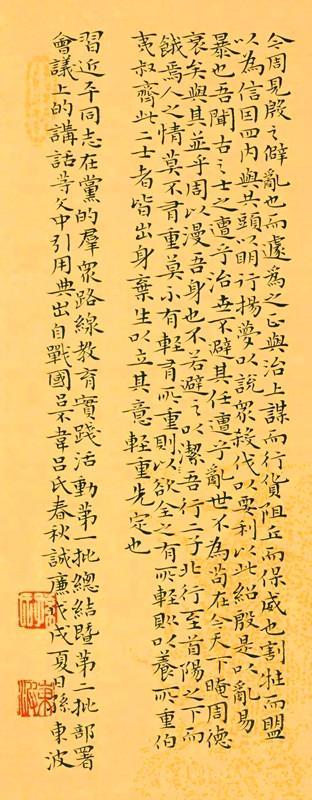 今周見殷之僻亂也而遽為之正與治上謀而行貨阻丘而保威也割牲而盟
以為信因四內與共頭以明行揚夢以說眾殺伐以要利以此紹殷是以亂易
暴也吾聞古之士遭乎治世不避其任遭乎亂世不為苟在今天下晻周德
衰矣與其並乎周以漫吾身也不若避之以潔吾行二子北行至首陽之下而
餓焉人之情莫不有重莫不有輕有所重則以欲全之有所輕則以養所重伯
夷叔齊此二士者皆出身棄生以立其意輕重先定也
習近平同志在黨的羣眾路線教育實踐活動第一批總結暨第二批部署
會議上的講話等文中引用典出自戰國呂不韋呂氏春秋誠廉戊戌夏日孫東波